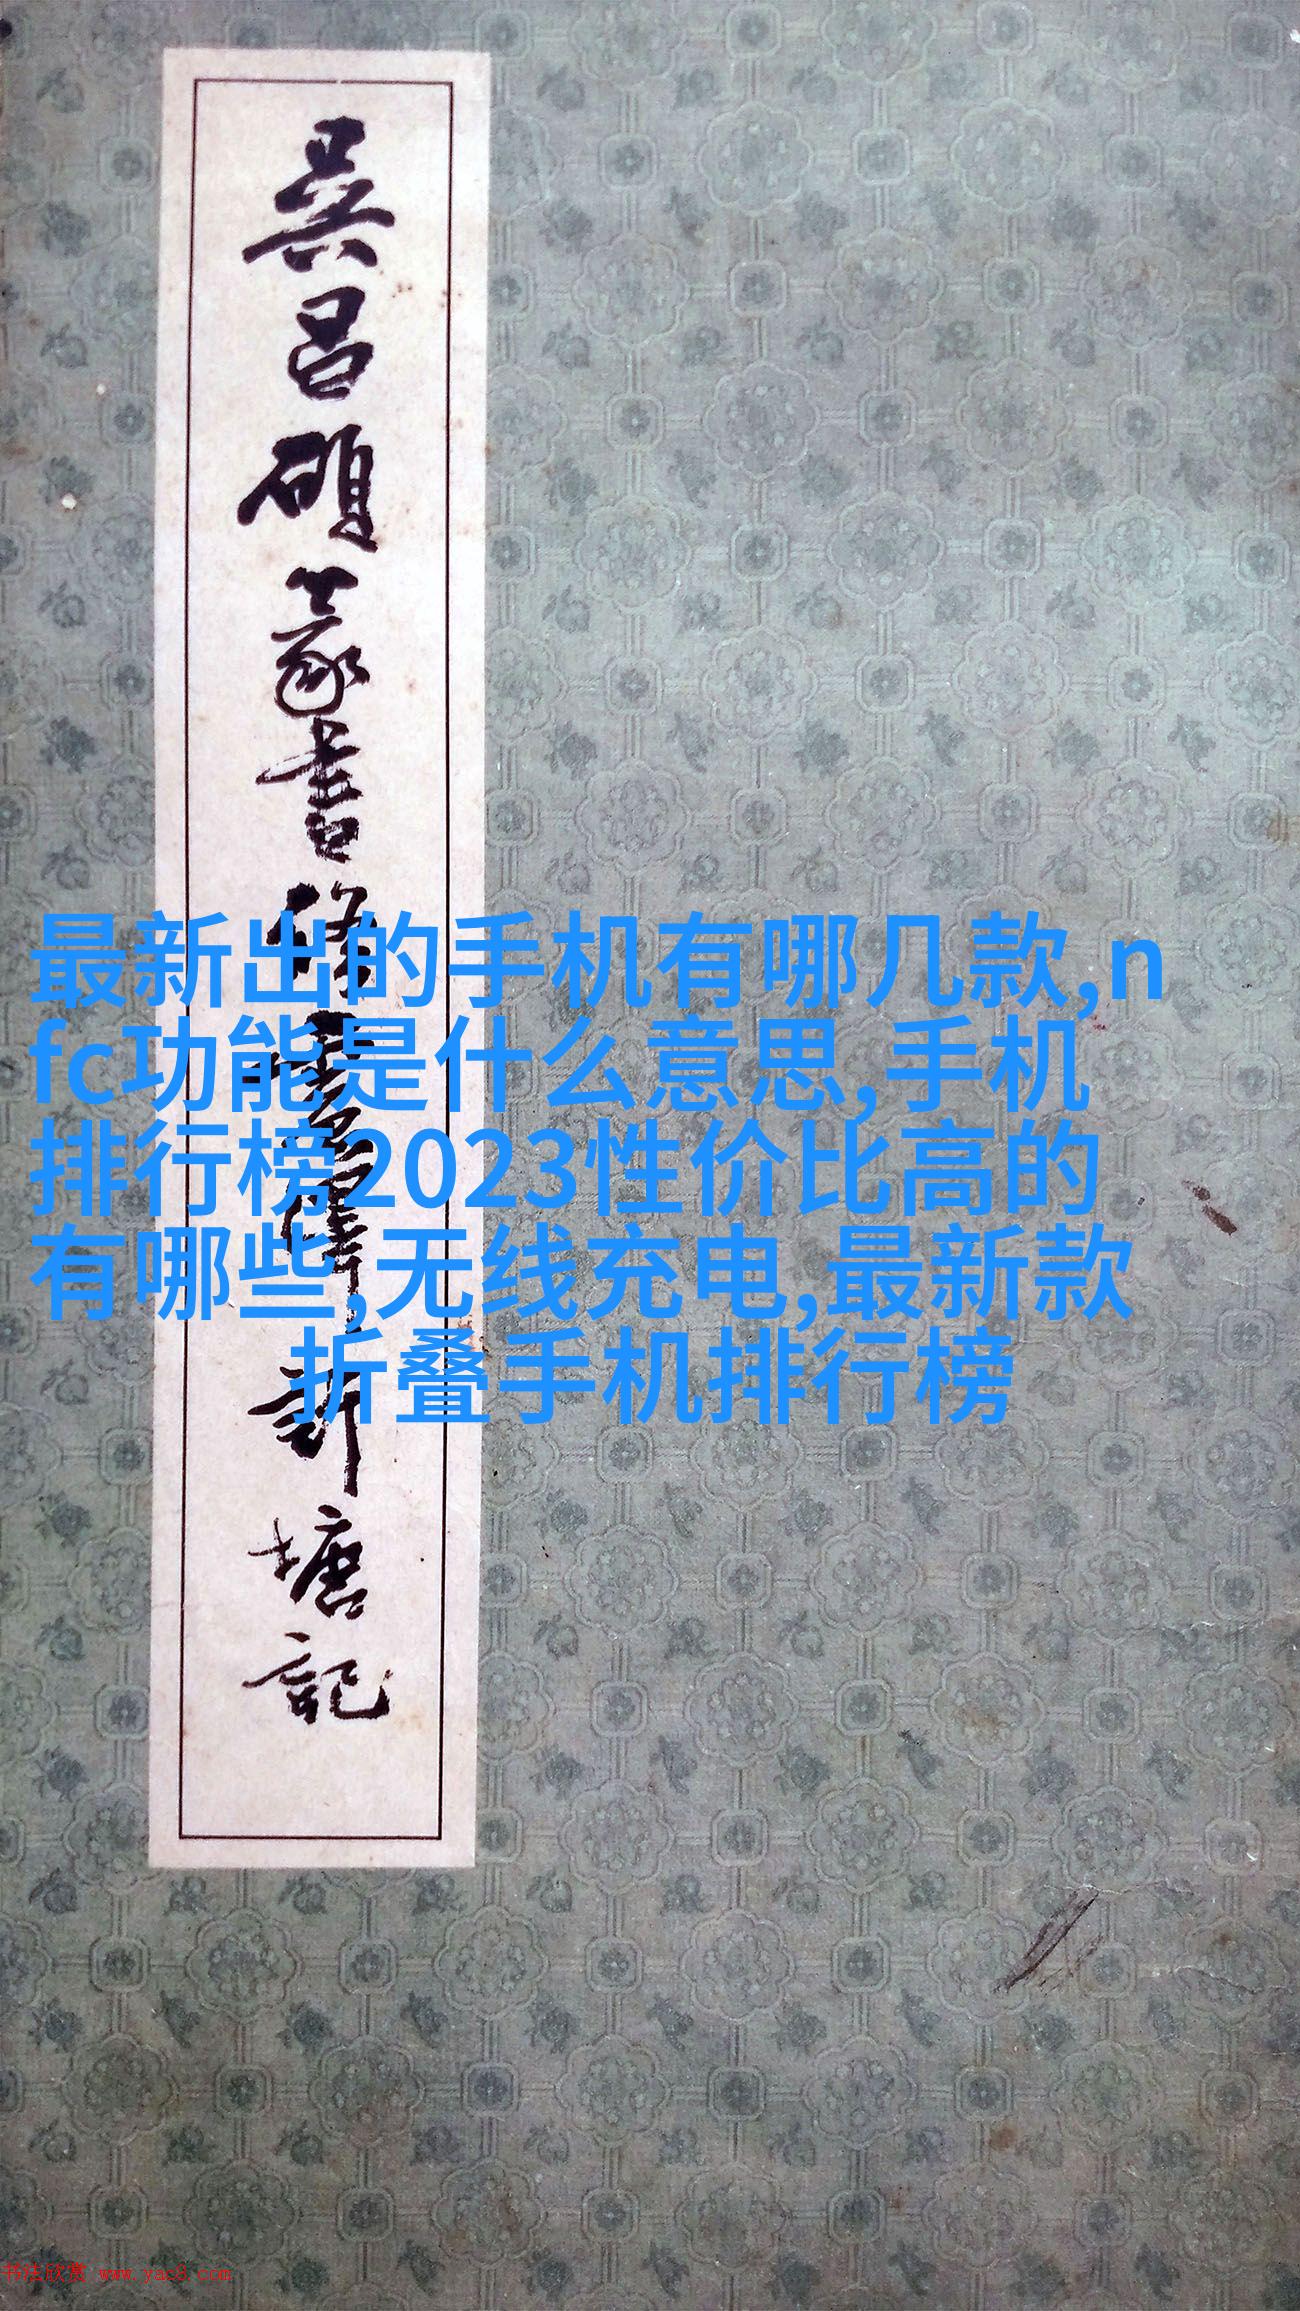 吴昌硕篆书修震泽许塘記
最新出的手机有哪几款,n
fc功能是什么意思,手机
排行榜2023性价比高的
有哪些,无线充电,最新款
折叠手机排行榜
书法欣赏 www.yac8.com